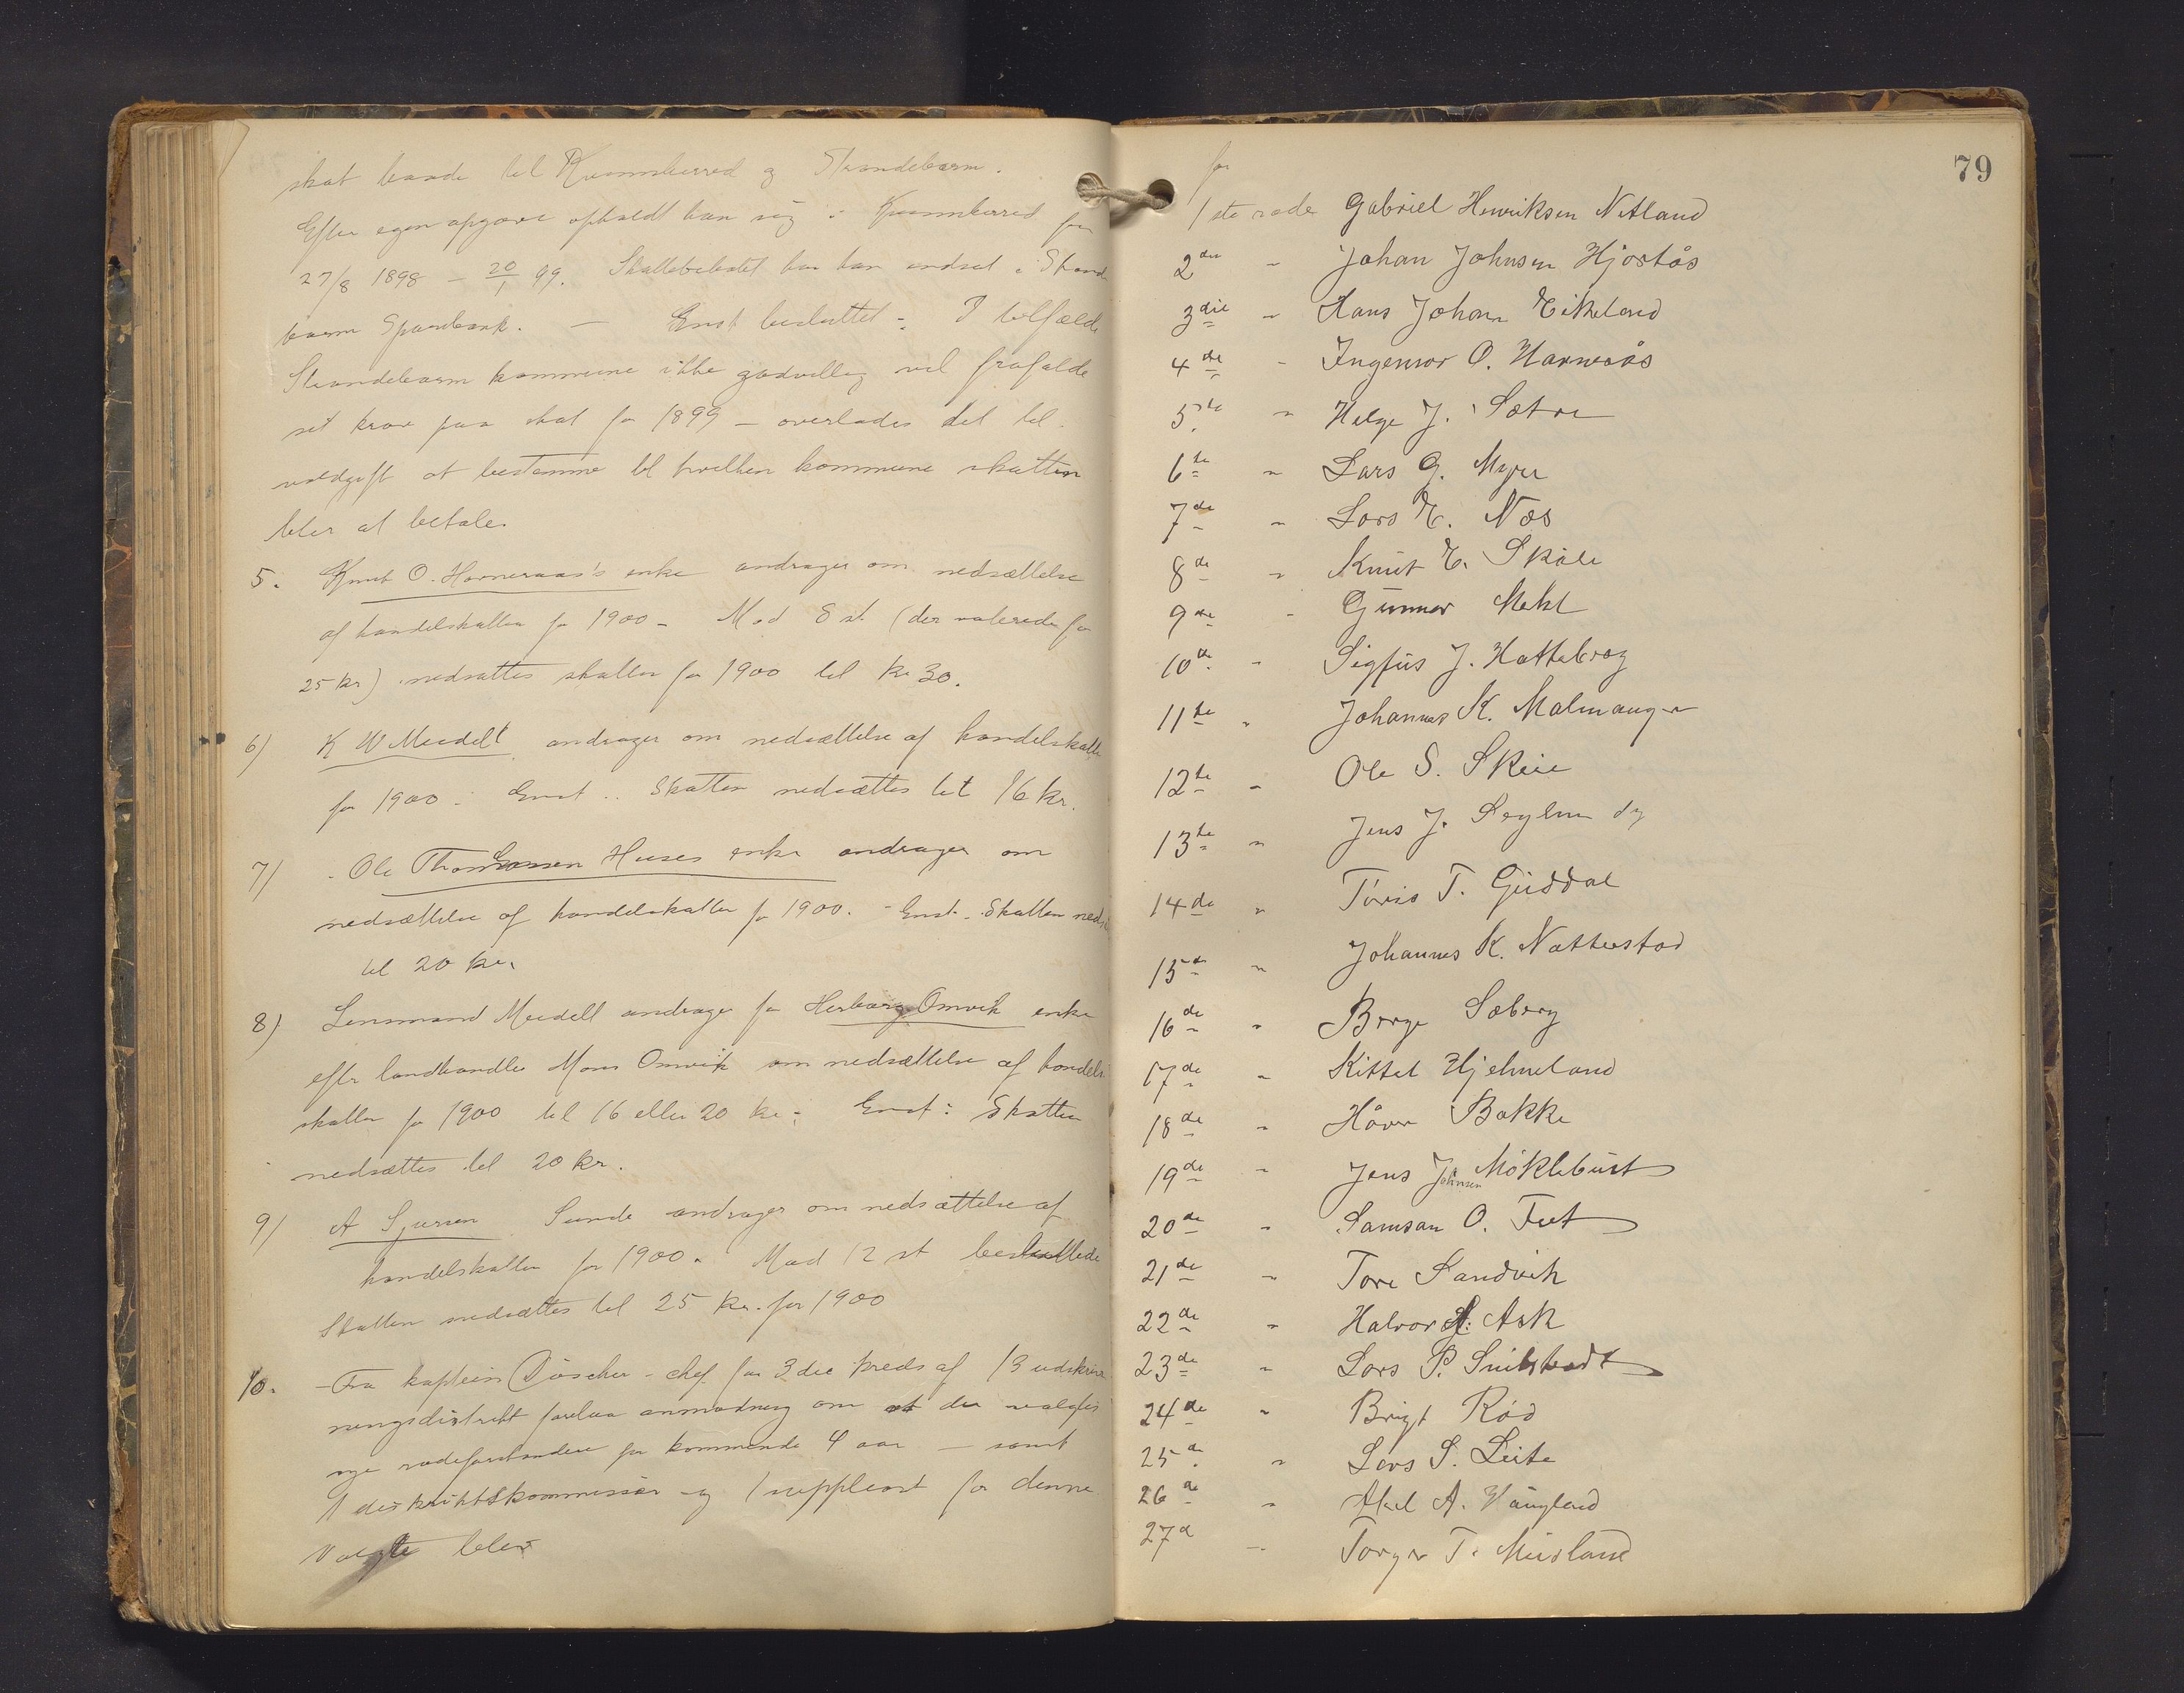 skat baade til Kvamsherred og Strandebarm.
Efter egen opgave opholdt han sig i Kvamsherred fra
27/8 1898 – 20/1 99. Skattebeløbet har han indsat i Strande
barm Sparebank. — Enst besluttet: I tilfælde
Strandebarm kommune ikke godvillig vil frafalde
sit krav paa skat for 1899 – overlades det til
voldgift at bestemme til hvilken kommune skatten
bler at betale.
5. Knut O. Hovneraas's enke andrager om nedsættelse
af handelskatten for 1900 – Mod 8 st (der voterede for
25 kr) nedsattes skatten for 1900 til kr 30.
6) K W Meidelt andrager om nedsættelse af handelskatten
for 1900. Enst. Skatten nedsættes til 16 kr.
7) Ole Thomassen Huses enke andrager om
nedsættelse af handelskatten for 1900. – Enst. Skatten neds
til 20 kr.
8) Lensmand Meidell andrager for Herborg Omvik enke
efter landhandler Mons Omvik om nedsættelse af handels
skatten for 1900 til 16 eller 20 kr. Enst: Skatten
nedsættes til 20 kr.
9) A Sjursen Sunde andrager om nedsættelse af
handelskatten for 1900. Mod 12 st besluttede
Skatten nedsættes til 25 kr. for 1900
10. Fra kaptein Düscher – chef for 3die kreds af 13 udskriv
ningsdistrikt forelaa anmodning om at der valgtes
nye rodeforstandere for kommende 4 aar – samt
1 distriktskommissær og 1 suppleant for denne
Valgte blev
79
for
1ste rode Gabriel Henriksen Netland
2den " Johan Johnsen Hjortås
3die " Hans Johan Eikeland
4de " Ingemor O. Harnesås
5te " Helge J. Sætre
6te " Lars G. Myre
7de " Lars E. Næs
8de " Knut E. Skåle
9de " Gunnar Mehl
10de " Sigfus J. Hatteberg
11te " Johannes K. Malmanger
12te " Ole S. Skeie
13te " Jens J.
14de " Toris T. Guddal
15de " Johannes K. Nattestad
16de " Børge Sæberg
17de " Kittel Hjelmeland
18de " Håver Bakke
19de " Jens Johnsen Møklebust
20de " Samson O. Fet
21de " Tore Sandvik
22de " Halvor H. Ask
23de " Lars P. Snilstvedt
24de " Brigt Rød
25de " Lars S. Leite
26de " Aksel A. Haugland
27de " Torger T. Musland